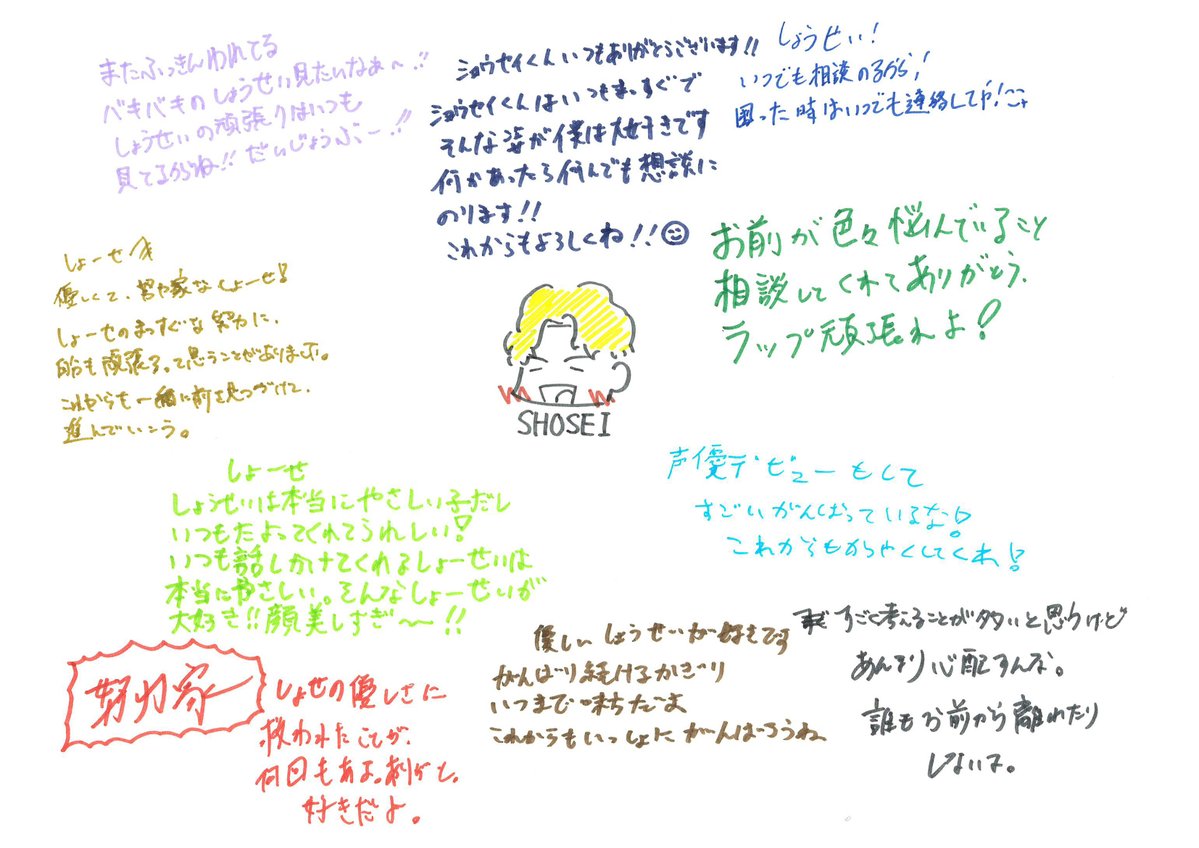 またふっきんわれてる
バキバキのしょうせい見たいなぁ〜!!
しょうせいの頑張りはいつも
見てるからね!! だいじょうぶー!!
ショウセイくんいつもありがとうございます!!
ショウセイくんはいつもまっすぐで
そんな姿が僕は大好きです
何かあったら何んでも想談に
のります!!
これからもよろしくね!!
しょうせい!
いつでも相談のるから!
困った時はいつでも連絡してや!
お前が色々悩んでいること
相談してくれてありがとう.
ラップ頑張れよ!
しょーせへ
優しくて、努力家なしょーせ!
しょーせのまっすぐな努力に、
自分も頑張ろって思うことがあります。
これからも一緒に前を見つづけて、
進んでいこう。
SHOSEI
しょーせ
しょうせいは本当にやさしい子だし
いつもたよってくれてうれしい!
いつも話しかけてくれるしょーせいは
本当にやさしい。そんなしょーせいが
大好き!!顔美しすぎ〜〜!!
声優デビューもして
すごいがんばっているな!
これからもかがやくしてくれ!
努力家
しょせの優しさに
救われたことが、
何回もあるよ。ありがと。
好きだよ。
優しいしょうせいが好きです
がんばり続けるかぎり
いつまで味方だよ
これからもいっしょにがんばろうね
すごく考えることが多いと思うけど
あんまり心配すんな。
誰もお前から離れたり
しないよ。